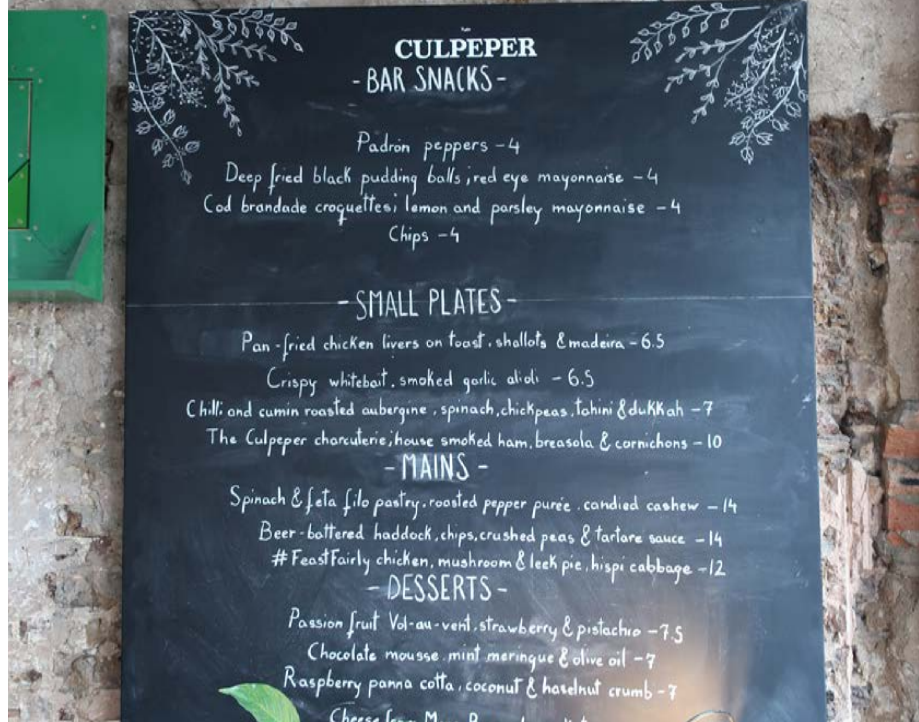 The
CULPEPER
- BAR SNACKS -
Padron peppers - 4
Deep fried black pudding balls ; red eye mayonnaise - 4
Cod brandade croquettes; lemon and parsley mayonnaise - 4
Chips - 4
- SMALL PLATES -
Pan-fried chicken livers on toast, shallots & madeira - 6.5
Crispy whitebait, smoked garlic alioli - 6.5
Chilli and cumin roasted aubergine, spinach, chickpeas, tahini & dukkah - 7
The Culpeper charcuterie; house smoked ham, breasola & cornichons - 10
- MAINS -
Spinach & feta filo pastry, roasted pepper purée, candied cashew - 14
Beer-battered haddock, chips, crushed peas & tartare sauce - 14
#FeastFairly chicken, mushroom & leek pie, hispi cabbage - 12
- DESSERTS -
Passion fruit Vol-au-vent, strawberry & pistachio - 7.5
Chocolate mousse, mint meringue & olive oil - 7
Raspberry panna cotta, coconut & hazelnut crumb - 7
Cheese from